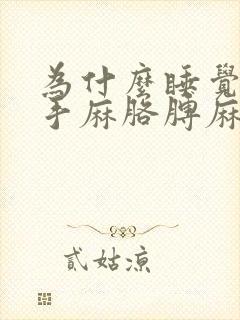 為什麼睡覺
手麻胳膊麻
貳姑涼